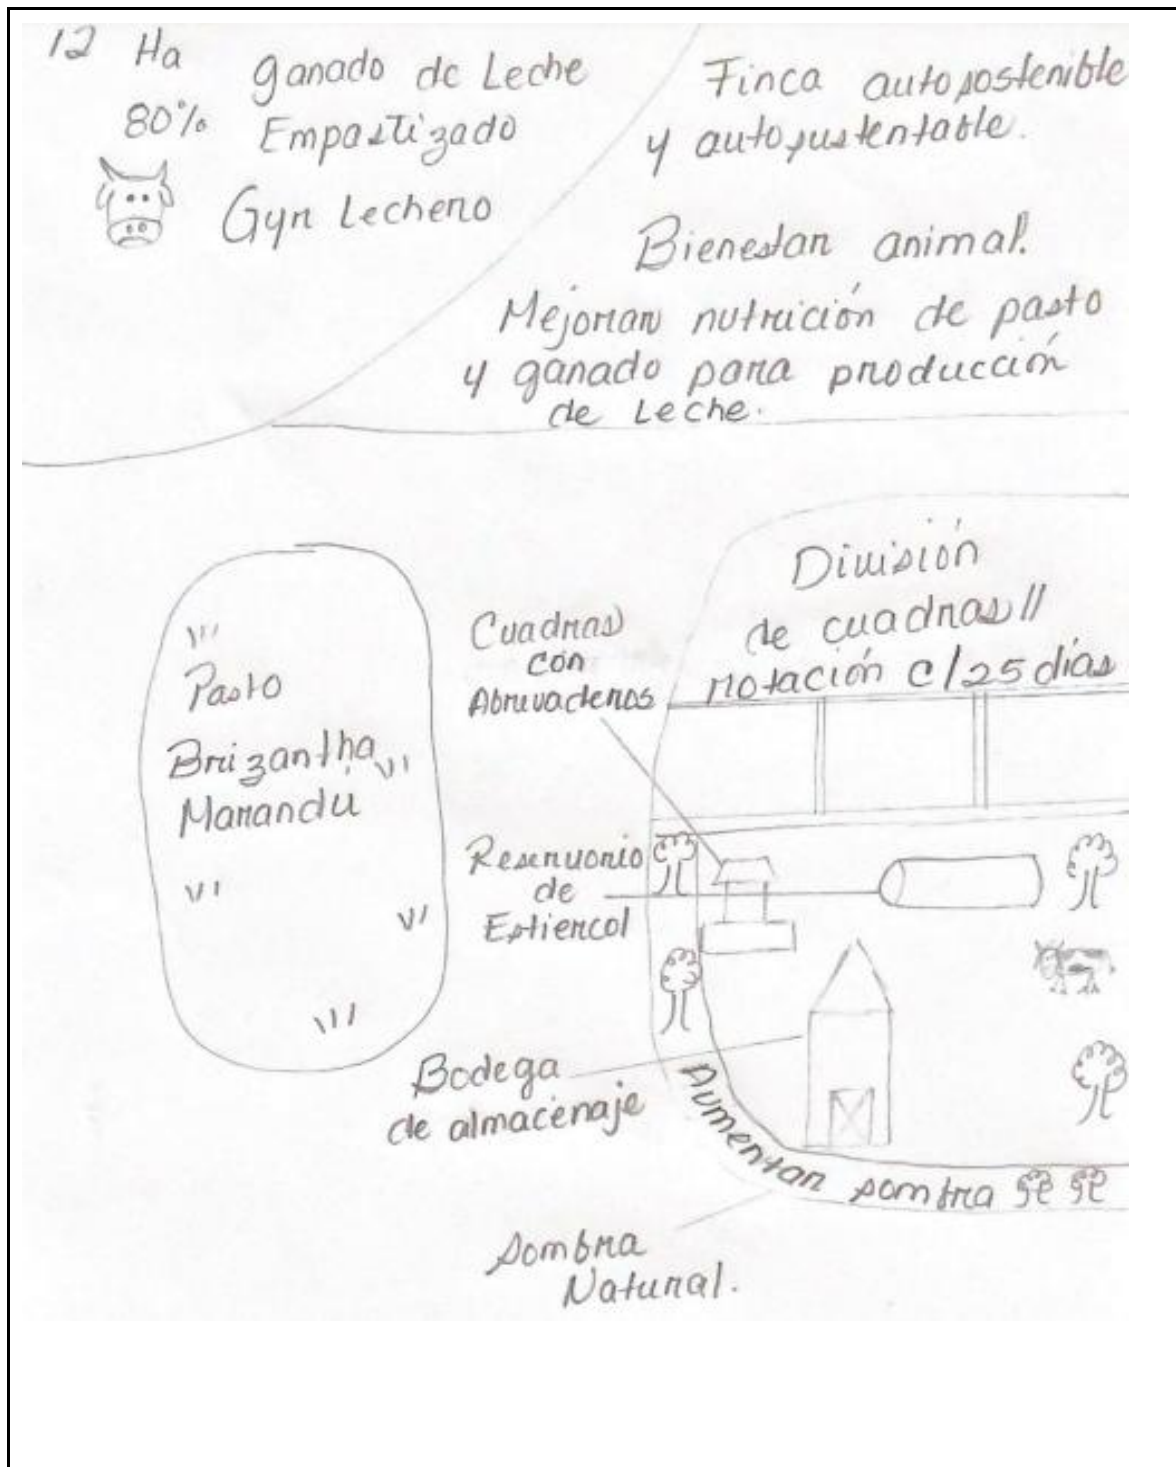 12 Ha
ganado de Leche
80% Empastizado
Gyr Lechero
Finca autosostenible
y autosustentable.
Bienestar animal.
Mejorar nutrición de pasto
y ganado para producción
de Leche.
Pasto
Brizantha
Marandu
Cuadras
con
Abruvaderos
División
de cuadras //
rotación c/25 días
Reservorio
de
Estiercol
Bodega
de almacenaje
Aumentar sombra
Sombra
Natural.